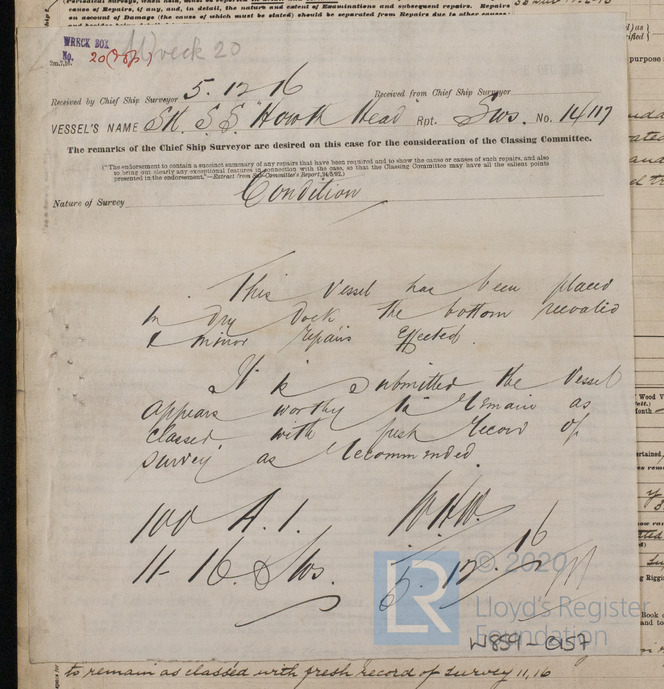 (Periodical Surveys, when held, must be reported
cause of Repairs, if any, and, in detail, the nature and extent of Examinations and subsequent repairs. Repairs
on account of Damage (the cause of which must be stated) should be separated from Repairs due to other causes:
WRECK BOX
No. 20
Wreck 20
Received by Chief Ship Surveyor 5.12.16 Received from Chief Ship Surveyor
VESSEL'S NAME SK. S.S. "Howth Head" Rpt. Sws. No. 14117
The remarks of the Chief Ship Surveyor are desired on this case for the consideration of the Classing Committee.
("The endorsement to contain a succinct summary of any repairs that have been required and to show the cause or causes of such repairs, and also
to bring out clearly any exceptional features in connection with the case, so that the Classing Committee may have all the salient points
presented in the endorsement."—Extract from Sub-Committee's Report,
Nature of Survey Condition
This vessel has been placed
in dry dock the bottom recoated
& minor repairs effected.
It is submitted the vessel
appears worthy to remain as
classed with fresh record of
survey as recommended
100 A.1.
11-16. Sws. 5.12.16
© 2020
LR
Lloyd's Register
Foundation
W859-0157
to remain as classed with fresh record of survey 11,16